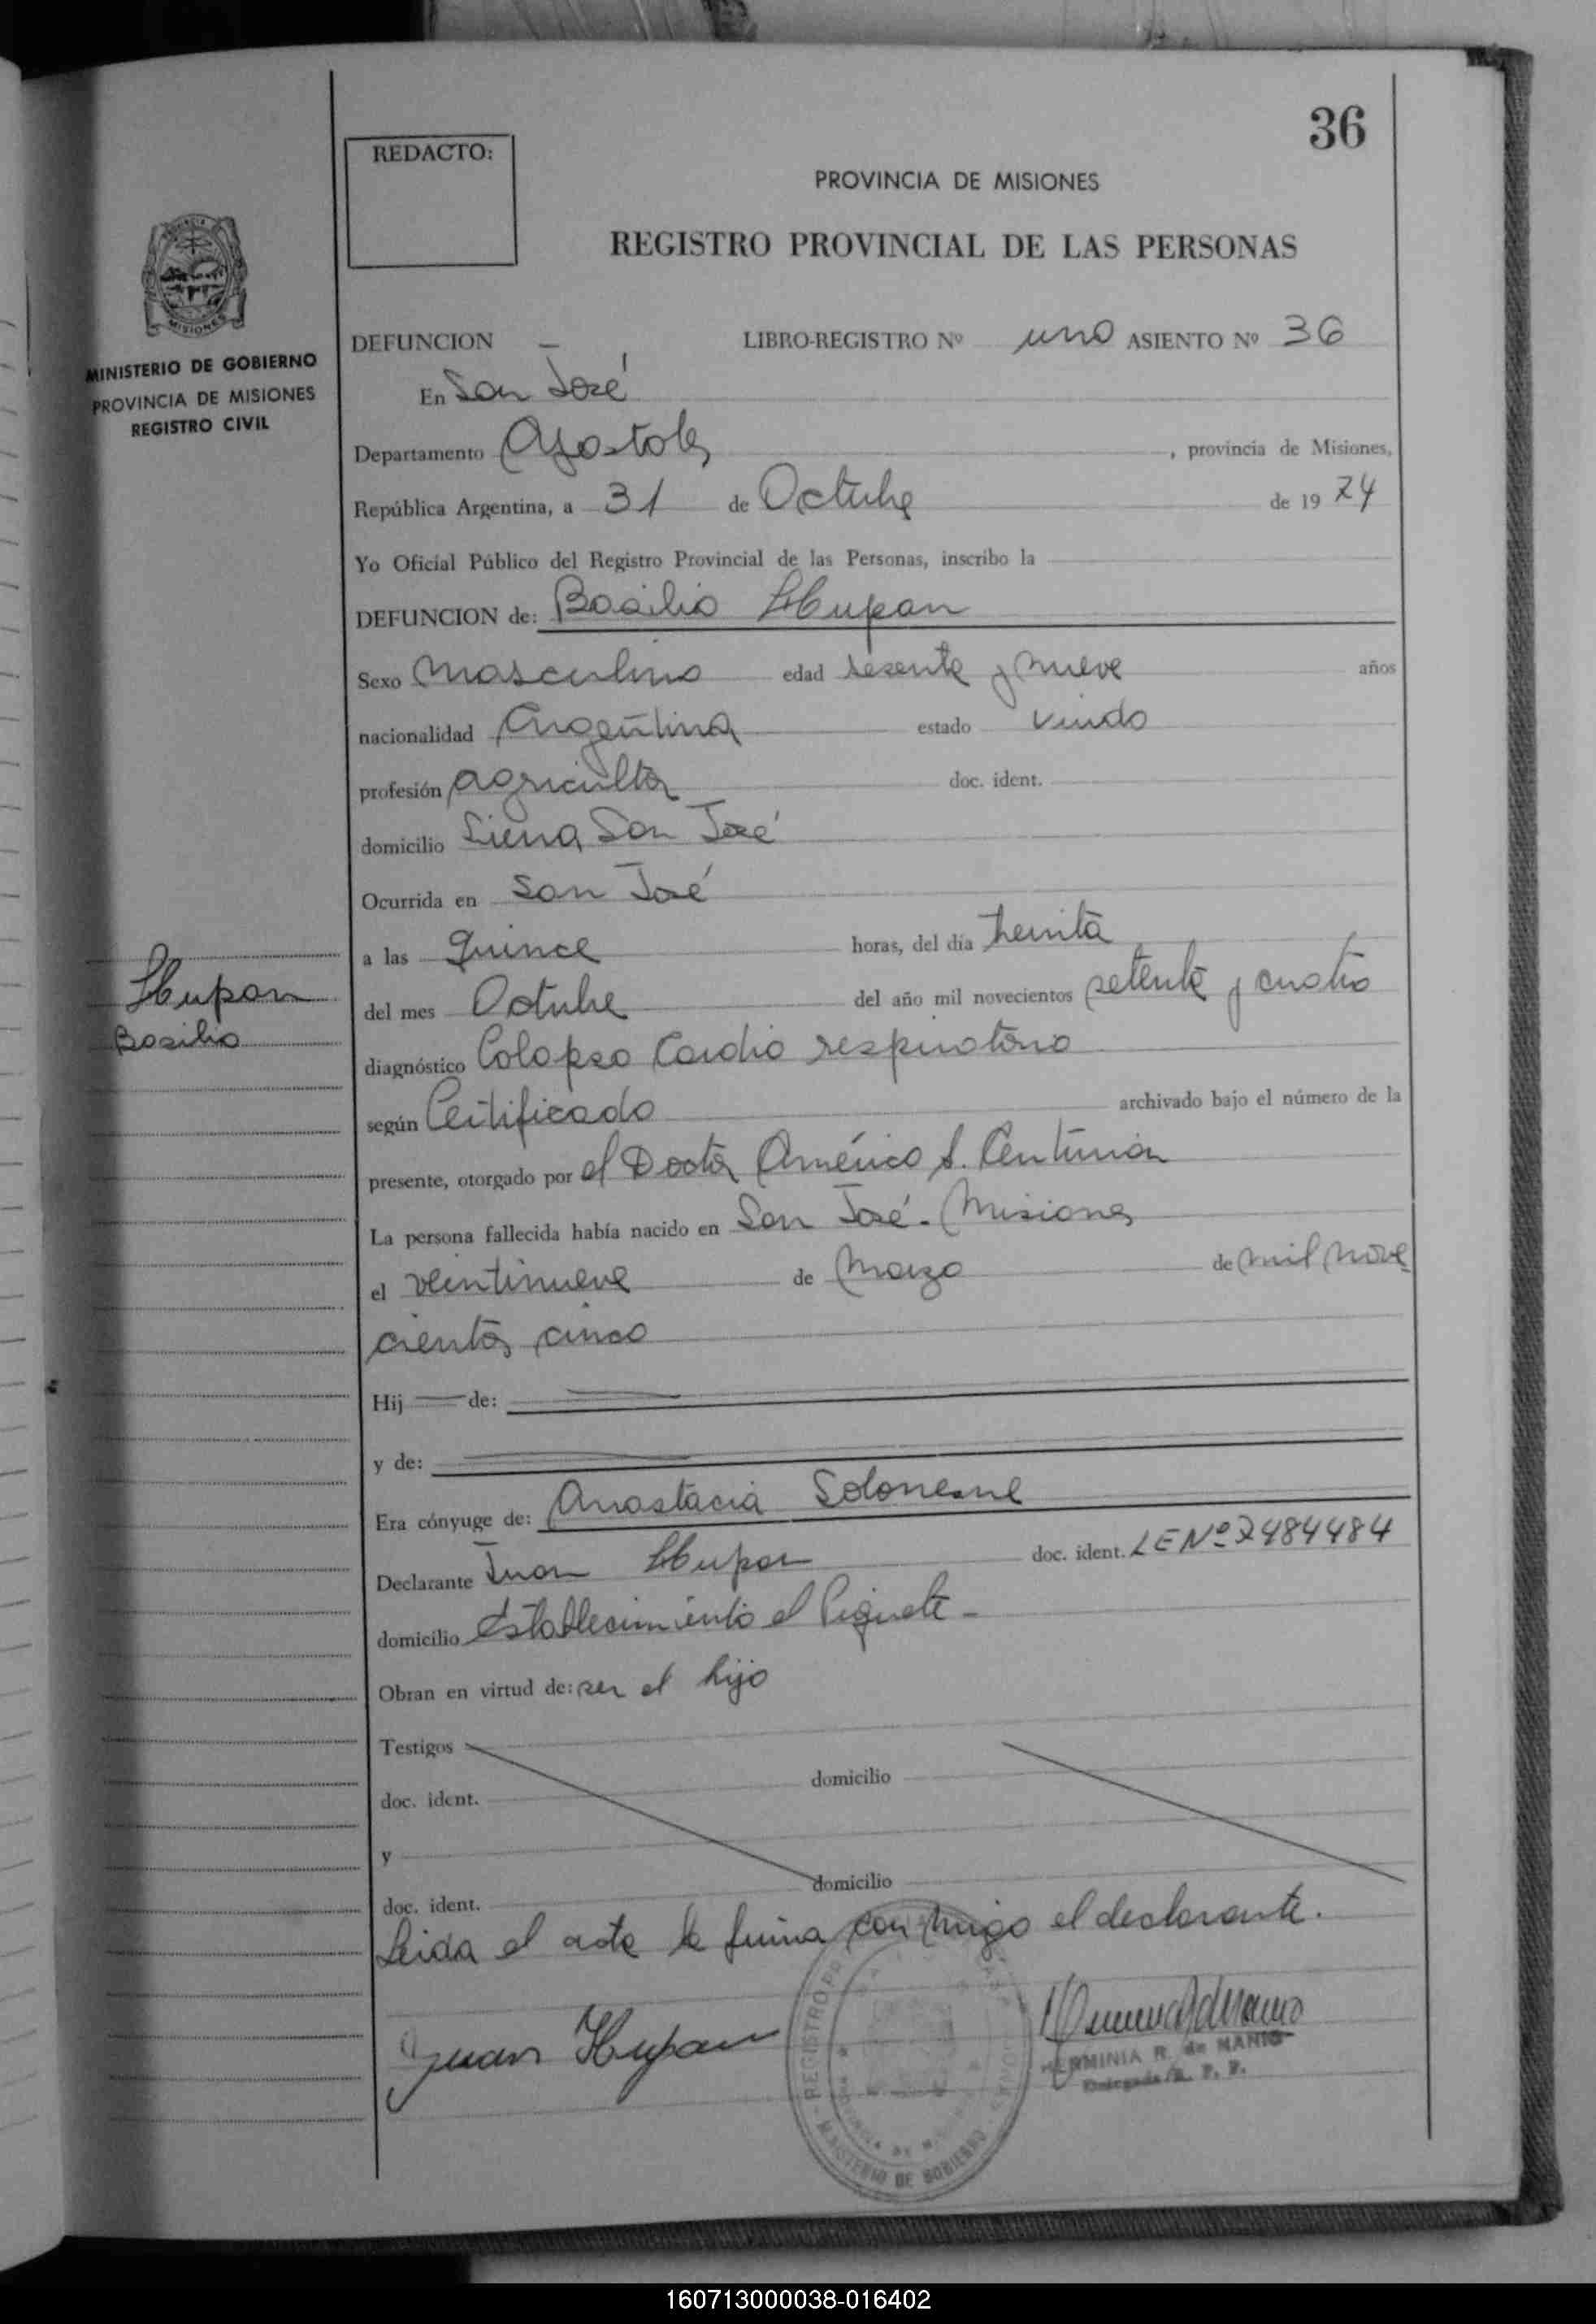 36
REDACTO:
PROVINCIA DE MISIONES
REGISTRO PROVINCIAL DE LAS PERSONAS
MISIONES
MINISTERIO DE GOBIERNO
PROVINCIA DE MISIONES
REGISTRO CIVIL
DEFUNCION LIBRO-REGISTRO Nº uno ASIENTO Nº 36
En San José
Departamento Apostoles, provincia de Misiones,
República Argentina, a 31 de Octubre de 19 74
Yo Oficial Público del Registro Provincial de las Personas, inscribo la
DEFUNCION de: Basilio Hupan
Sexo Masculino edad sesenta y nueve años
nacionalidad Argentina estado viudo
profesión agricultor doc. ident.
domicilio Sierra San José
Ocurrida en San José
a las quince horas, del día treinta
del mes Octubre del año mil novecientos setenta y cuatro
Hupan
Basilio
diagnóstico Colapso Cardio respiratorio
según Certificado archivado bajo el número de la
presente, otorgado por el Doctor Américo S. Centurión
La persona fallecida había nacido en San José - Misiones
el veintinueve de Marzo de mil nove
cientos cinco
Hij de:
y de:
Era cónyuge de: Anastacia
Declarante Juan Hupan doc. ident. LE Nº 7484484
domicilio Establecimiento el Piquete -
Obran en virtud de: ser el hijo
Testigos
doc. ident. domicilio
y
doc. ident. domicilio
Leida el acta la firma conmigo el declarante.
Juan Hupan
HERMINIA R. de NANIO
MINISTERIO DE GOBIERNO
160713000038-016402